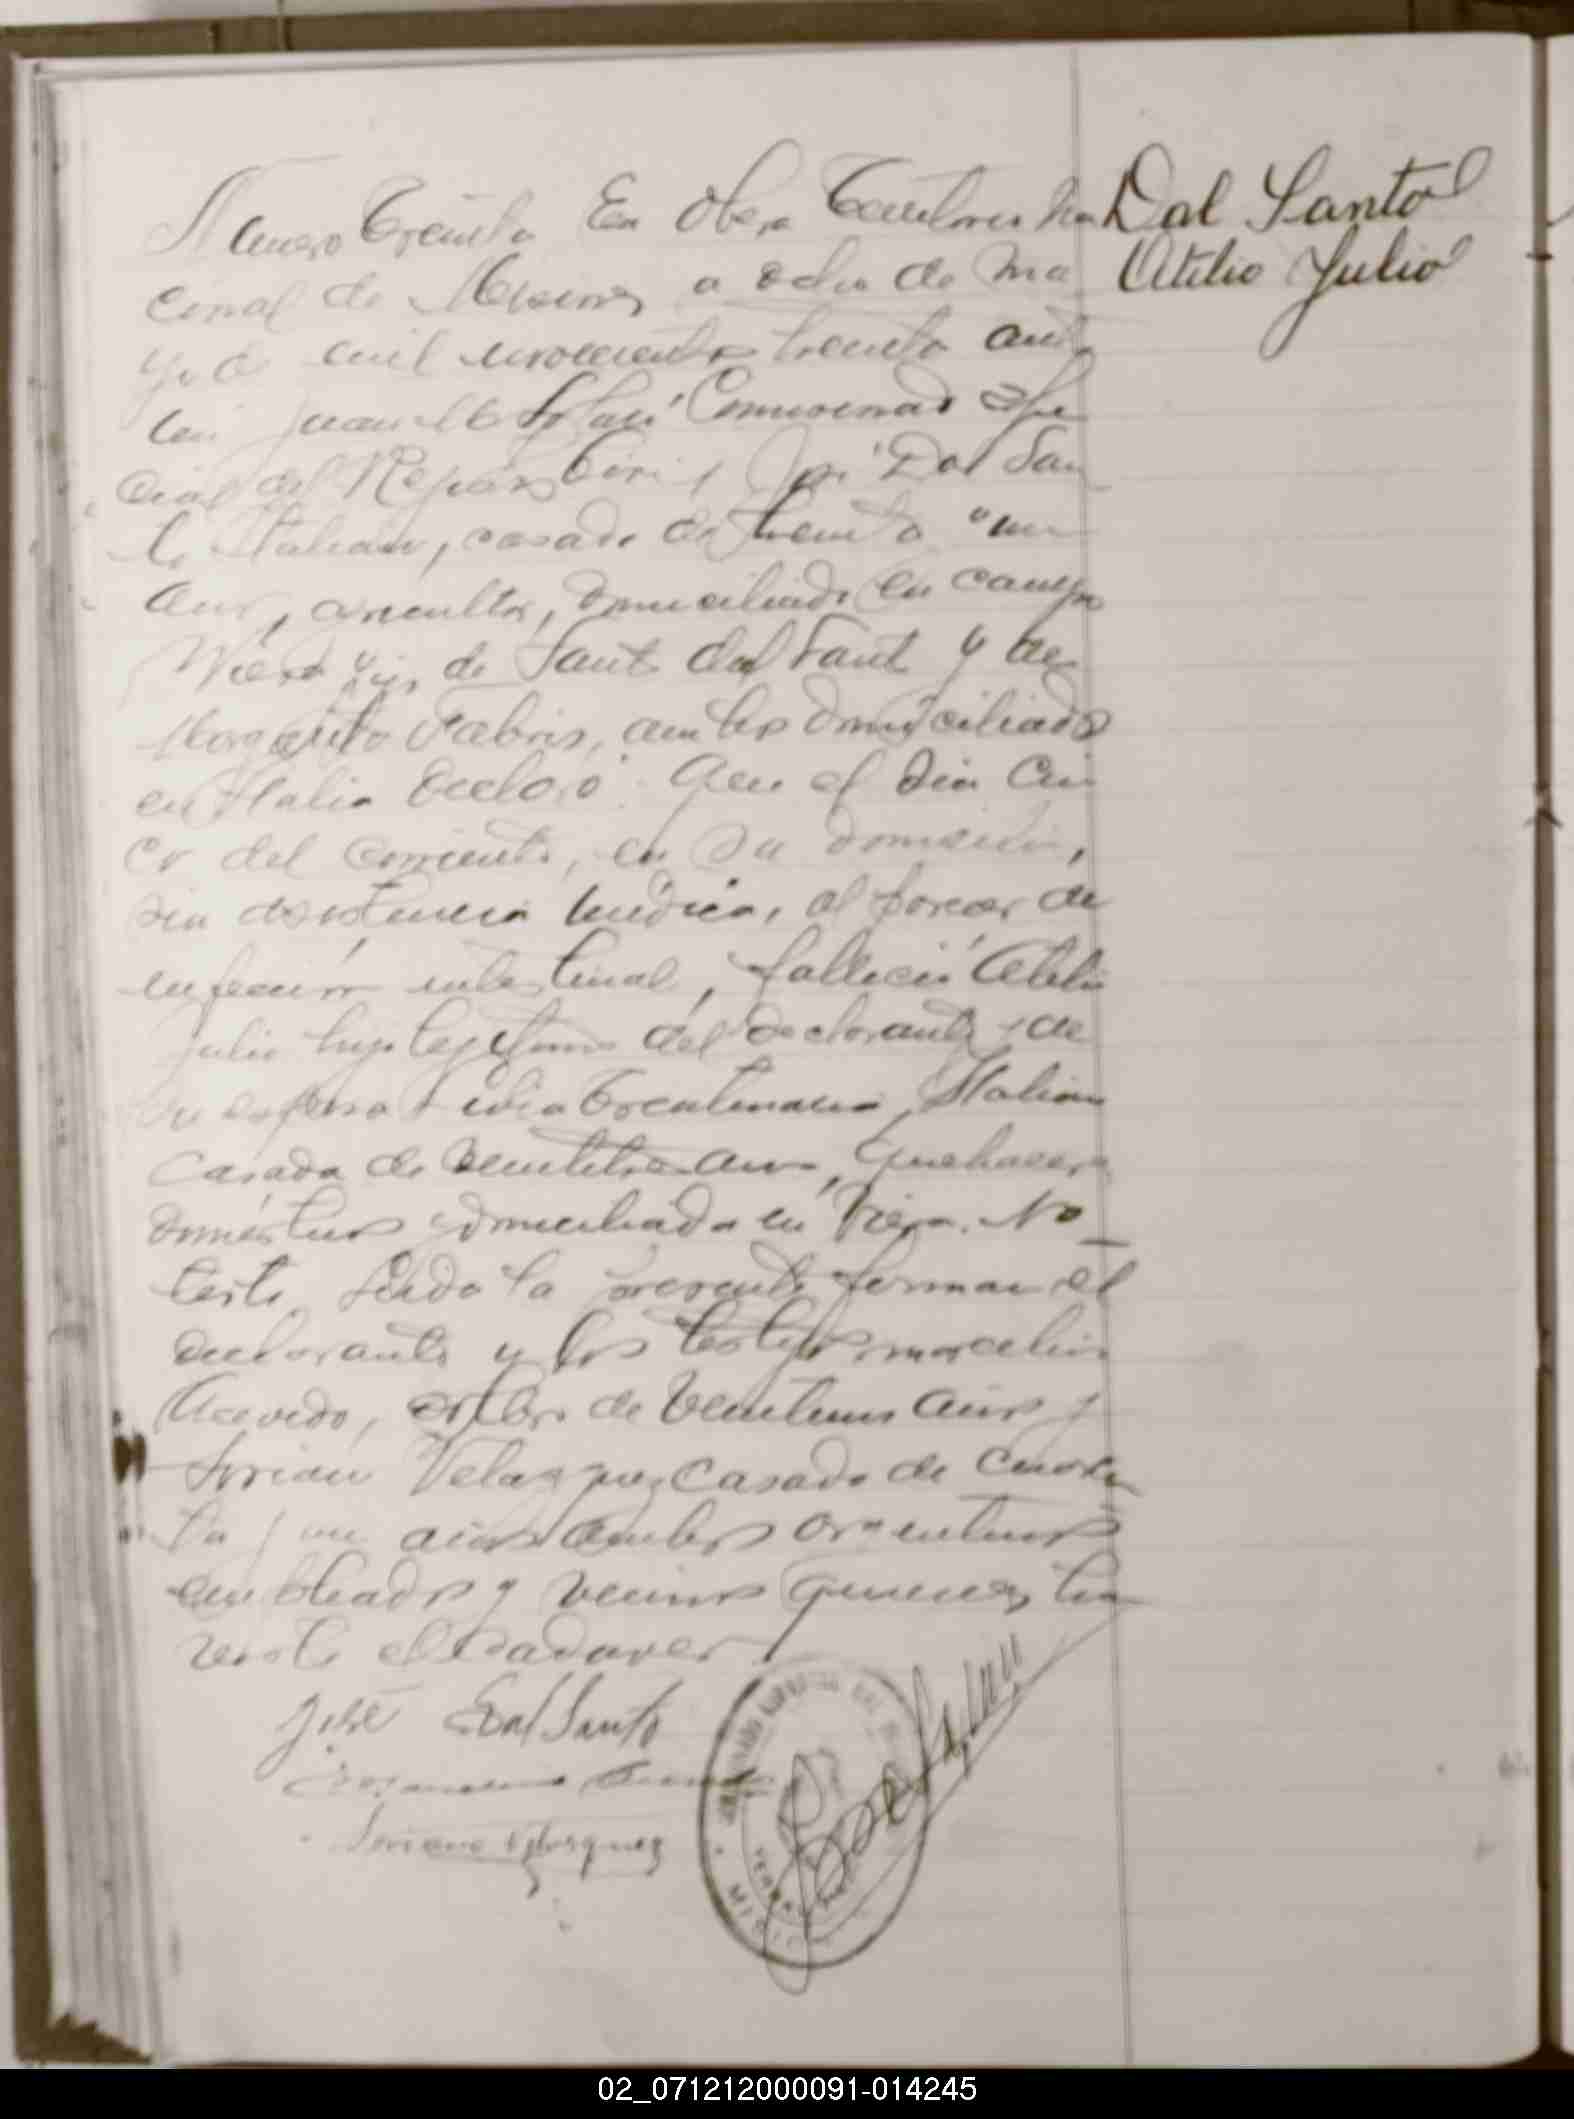 Numero Treinta En Obera Territorio Na
cional de Misiones a ocho de Ma
yo de mil novecientos treinta ante
mi Juan Comisionado Espe
cial del Registro Civil José Dal San
to Italiano, casado de treinta un
años, agricultor, domiciliado en campo
Viera hijo de Sant dal Sant y de
Margarita Fabris, ambos domiciliados
en Italia Declaró: Que el dia cin
co del corriente, en su domicilio,
sin asistencia medica, al parecer de
infección intestinal, falleció Atilio
Julio hijo legitimo del declarante y de
su esposa Trentinaria, Italiana
casada de veintitres años, quehaceres
domésticos domiciliada en Viera. No
testó. Leida la presente firman el
declarante y los testigos, marcelino
Acevedo, soltero de veintiun años y
Soriano Velazquez casado de cuaren
ta y un años ambos argentinos
empleados y vecinos quienes han
visto el cadaver
José Dal Santo
Soriano Velasquez
Dal Santo
Atilio Julio
02_071212000091-014245